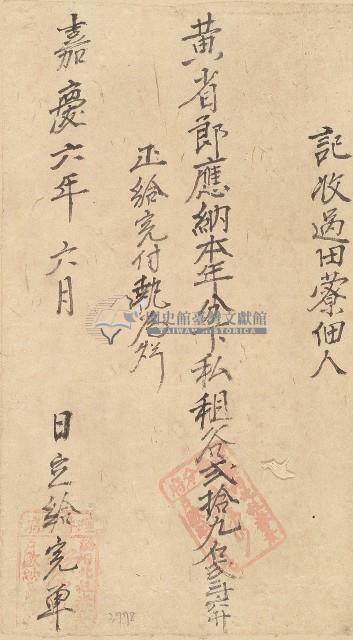 記收過田藔佃人
黄省郎應納本年分下私租谷弍拾九石弍斗六升
正給完付執照
嘉慶六年六月 日立給完单
國史館臺灣文獻館
TAIWAN HISTORICA
3998